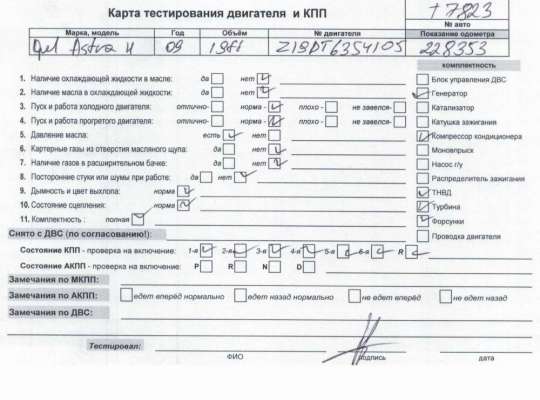 Карта тестирования двигателя и КПП
+7823
№ авто
Марка, модель Год Объём № двигателя Показание одометра
Opel Astra H 09 19dt Z19DT6354105 228353
комплектность
1. Наличие охлаждающей жидкости в масле: да нет
2. Наличие масла в охлаждающей жидкости: да нет
3. Пуск и работа холодного двигателя: отлично- норма - плохо - не завелся-
4. Пуск и работа прогретого двигателя: отлично- норма - плохо - не завелся-
5. Давление масла: есть нет
6. Картерные газы из отверстия масляного щупа: да нет
7. Наличие газов в расширительном бачке: да нет
8. Посторонние стуки или шумы при работе: да нет
9. Дымность и цвет выхлопа: норма
10. Состояние сцепления: норма
11. Комплектность : полная
Блок управления ДВС
Генератор
Катализатор
Катушка зажигания
Компрессор кондиционера
Моновпрыск
Насос г/у
Распределитель зажигания
ТНВД
Турбина
Форсунки
Проводка двигателя
Снято с ДВС (по согласованию!):
Состояние КПП - проверка на включение: 1-я 2-я 3-я 4-я 5-я 6-я R
Состояние АКПП - проверка на включение: P R N D
Замечания по МКПП:
Замечания по АКПП: едет вперёд нормально едет назад нормально не едет вперёд не едет назад
Замечания по ДВС:
Тестировал:
ФИО подпись дата